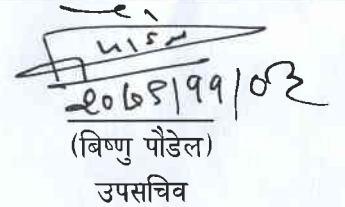 २०७९।११।०२
(बिष्णु पौडेल)
उपसचिव